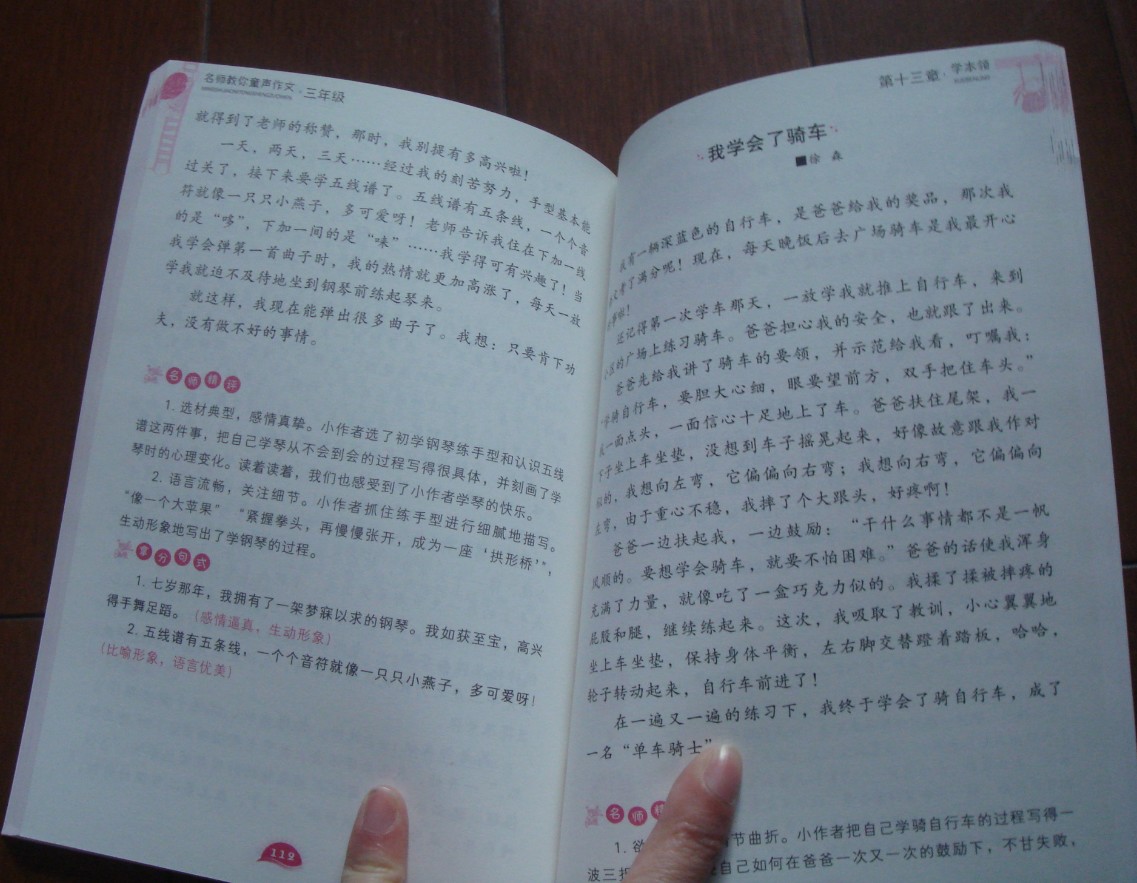 名师教你童声作文·三年级
就得到了老师的称赞，那时，我别提有多高兴啦！
一天，两天，三天……经过我的刻苦努力，手型基本能
过关了，接下来要学五线谱了。五线谱有五条线，一个个音
符就像一只只小燕子，多可爱呀！老师告诉我住在下加一线
的是“哆”，下加一间的是“咪”……我学得可有兴趣了！当
我学会弹第一首曲子时，我的热情就更加高涨了，每天一放
学我就迫不及待地坐到钢琴前练起琴来。
就这样，我现在能弹出很多曲子了。我想：只要肯下功
夫，没有做不好的事情。
名师精评
1. 选材典型，感情真挚。小作者选了初学钢琴练手型和认识五线
谱这两件事，把自己学琴从不会到会的过程写得很具体，并刻画了学
琴时的心理变化。读着读着，我们也感受到了小作者学琴的快乐。
2. 语言流畅，关注细节。小作者抓住练手型进行细腻地描写。
“像一个大苹果”“紧握拳头，再慢慢张开，成为一座‘拱形桥’”，
生动形象地写出了学钢琴的过程。
拿分句式
1. 七岁那年，我拥有了一架梦寐以求的钢琴。我如获至宝，高兴
得手舞足蹈。（感情逼真，生动形象）
2. 五线谱有五条线，一个个音符就像一只只小燕子，多可爱呀！
（比喻形象，语言优美）
112
第十三章·学本领
我学会了骑车
■徐 森
我有一辆深蓝色的自行车，是爸爸给我的奖品，那次我
考了满分呢！现在，每天晚饭后去广场骑车是我最开心
事啦！
还记得第一次学车那天，一放学我就推上自行车，来到
的广场上练习骑车。爸爸担心我的安全，也就跟了出来。
爸爸先给我讲了骑车的要领，并示范给我看，叮嘱我：
骑自行车，要胆大心细，眼要望前方，双手把住车头。”
一面点头，一面信心十足地上了车。爸爸扶住尾架，我一
子坐上车坐垫，没想到车子摇晃起来，好像故意跟我作对
似的，我想向左弯，它偏偏向右弯；我想向右弯，它偏偏向
左弯，由于重心不稳，我摔了个大跟头，好疼啊！
爸爸一边扶起我，一边鼓励：“干什么事情都不是一帆
风顺的。要想学会骑车，就要不怕困难。”爸爸的话使我浑身
充满了力量，就像吃了一盒巧克力似的。我揉了揉被摔疼的
屁股和腿，继续练起来。这次，我吸取了教训，小心翼翼地
坐上车坐垫，保持身体平衡，左右脚交替蹬着踏板，哈哈，
轮子转动起来，自行车前进了！
在一遍又一遍的练习下，我终于学会了骑自行车，成了
一名“单车骑士”
名师精
1. 欲 节曲折。小作者把自己学骑自行车的过程写得一
波三折 自己如何在爸爸一次又一次的鼓励下，不甘失败，